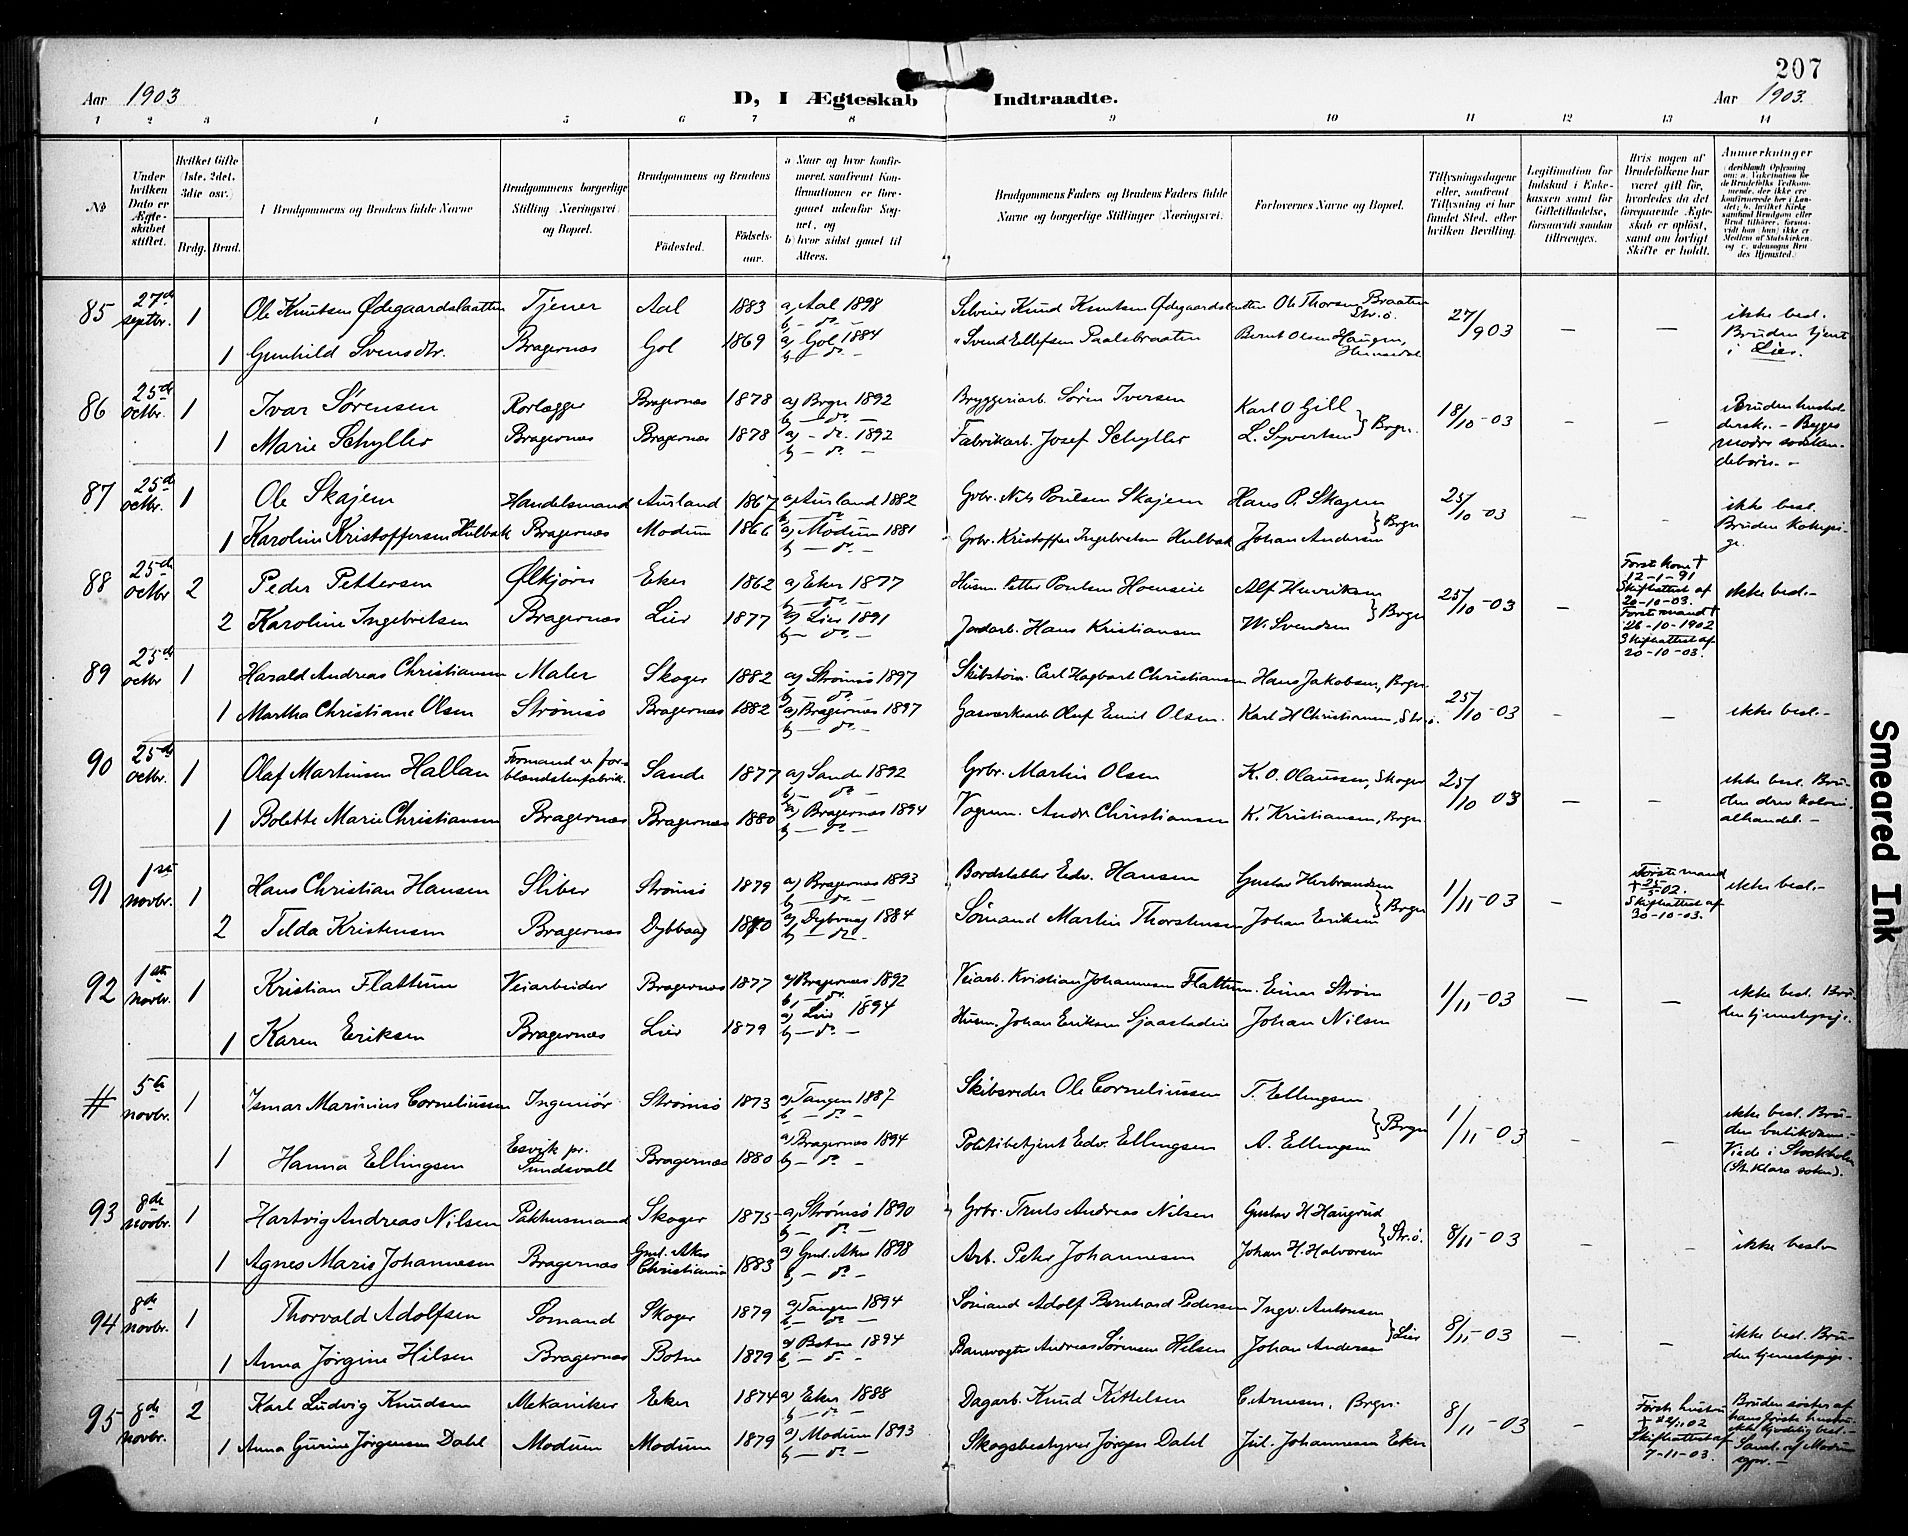 207
Aar 1903
D, I Ægteskab Indtraadte.
Aar 1903.
1 2 3 4 5 6 7 8 9 10 11 12 13 14
No.
Under hvilken Dato er Ægteskabet stiftet.
Hvilket Gifte (1ste, 2det, 3die osv.)
Brdg. Brud.
I Brudgommens og Brudens fulde Navne
Brudgommens borgerlige Stilling (Næringsvei) og Bopæl.
Brudgommens og Brudens
Fødested.
Fødselsaar.
a Naar og hvor konfirmeret, saafremt Konfirmationen er foregaaet udenfor Sognet, og
b) hvor sidst gaaet til Alters.
Brudgommens Faders og Brudens Faders fulde Navne og borgerlige Stillinger (Næringsvei.
Forlovernes Navne og Bopæl.
Tillysningsdagene eller, saafremt Tillysning ei har fundet Sted, efter hvilken Bevilling.
Legitimation for Indskud i Enkekassen samt for Giftetilladelse, forsaavidt saadan tiltrænges.
Hvis nogen af Brudefolkene har været gift før, hvorledes da det foregaaende Ægteskab er opløst, samt om lovligt Skifte er holdt.
Anmærkninger
85 27de septbr. 1 Ole Knutsen Ødegaardslaatten Tjener Aal 1883 a) Aal 1898 b) - do - Selveier Knud Knutsen Ødegaardslaatten Ole Thorsen Braaten Str.ö. 27/9 03 - - ikke besl.
1 Gunhild Svensdtr. Bragernæs Gol 1869 a) Gol 1884 b) - do - " Svend Ellefsen Paalsbraaten Bernt Olsen Haugen, Hemsedal Bruden tjent i Lier.
86 25de octbr. 1 Ivar Sørensen Rørlægger Bragernæs 1878 a) Brgn 1892 b) - do - Bryggeriarb. Søren Iversen Karl O Gill } Brgn. 18/10-03 - -
1 Marie Schyller Bragernæs Bragernæs 1878 a) - do. 1892 b) - do - Fabrikarb. Josef Schyller L. Syvertsen
87 25de octbr. 1 Ole Skajem Handelsmand Aurland 1867 a) Aurland 1882 b) - do - Gbr. Nils Poulsen Skajem Hans P. Skagen } Brgn 25/10-03 - - ikke besl.
1 Karoline Kristoffersen Hulbak Bragernæs Modum 1866 a) Modum 1881 b) - do - Gbr. Kristoffer Ingebretsen Hulbak Johan Andersen
88 25de octbr 2 Peder Pettersen Ølkjører Eker 1862 a) Eker 1877 b) - do - Husm. Petter Poulsen Alf Henriksen } Brgn 25/10-03 - Første kone † 12-1-91 Skifteattest af 20-10-03. ikke besl.-
2 Karoline Ingebretsen Bragernæs Lier 1877 a) Lier 1891 b) - do. - Jordarb. Hans Kristiansen W. Svendsen Første mand † 26-10-1902 Skifteattest af 20-10-03.
89 25de octbr 1 Harald Andreas Christiansen Maler Skoger 1882 a) Strømsö 1897 b) - do - Carl Hagbart Christiansen Hans Jakobsen, Brgn. 25/10-03 - - ikke besl.-
1 Martha Christiane Olsen Strømsö Bragernæs 1882 a) Bragernæs 1897 b) - do - Gasværksarb Oluf Emil Olsen. Karl H Christiansen, Str.ö.
90 25de octbr. 1 Olaf Martinsen Hallan Formand v forblændstenfabrik. Sande 1877 a) Sande 1892 b) - do - Gbr. Martin Olsen K. O. Olaussen, Skoger 25/10 03 - - ikke besl. Bruden drev kolonialhandel.-
1 Bolette Marie Christiansen Bragernæs Bragernæs 1880 a) Bragernæs 1894 b) - do. - Vognm. Andr. Christiansen K. Kristiansen, Brgn
91 1ste novbr. 1 Hans Christian Hansen Sliber Strømsö 1879 a) Bragernæs 1893 b) - do. - Bordstabler Edv. Hansen Gustav Herbrandsen } Brgn 1/11-03 - Første mand † 02. Skifteattest af 30-10-03. ikke besl.-
2 Tilda Kristensen Bragernæs Dybvaag 1870 a) Dybvaag 1884 b) - do. - Sømand Martin Thorstensen Johan Eriksen
92 1ste novbr. 1 Kristian Flattum Veiarbeider Bragernæs 1877 a) Bragernæs 1892 b) - do - Veiarb. Kristian Johannesen Flattum. Einar Strøm 1/11-03 - - ikke besl. Bruden tjenestepige.
1 Karen Eriksen Bragernæs Lier 1879 a) Lier 1894 b) - do - Husm. Johan Eriksen Johan Nilsen
# 5te novbr. 1 Ismar Marinius Corneliussen Ingeniör Strömsö 1873 a) Tangen 1887 b) - do - Skibsreder Ole Corneliussen T. Ellingsen } Brgn 1/11-03 - - ikke besl. Bruden
1 Hanna Ellingsen Essvik pr. Sundsvall Bragernæs 1880 a) Bragernæs 1894 b) - do - Politibetjent Edv. Ellingsen A. Ellingsen Viede i Stockholm (St. Klara soken).
93 8de novbr. 1 Hartvig Andreas Nilsen Pakhusmand Skoger 1875 a) Strømsö 1890 b) - do - Gbr. Truls Andreas Nilsen Gustav H Haugrud } Str.ö. 8/11-03 - - ikke besl.
1 Agnes Marie Johannesen Bragernæs Gml. Aker Christiania 1883 a) Gml. Aker 1898 b) - do - Arb. Peter Johannesen Johan H. Halvorsen
94 8de novbr. 1 Thorvald Adolfsen Sömand Skoger 1879 a) Tangen 1894 b) - do - Sömand Adolf Bernhard Pedersen Ingv. Antonsen } Lier 8/11-03 - - ikke besl. Bruden tjenestepige.-
1 Anna Jørgine Hilsen Bragernæs Botne 1879 a) Botne 1894 b) - do - Banevogter Andreas Sörensen Hilsen Johan Andersen
95 8de novbr. 2 Karl Ludvig Knudsen Mekaniker Eker 1874 a) Eker 1888 b) - do - Dagarb. Knud Kittelsen C. Arnesen, Brgn. 8/11-03 - Første hustru † 02 Skifteattest af 7-11-03. Bruden søster af hans første hustru
1 Anna Gurine Jørgensen Dahl Modum Modum 1879 a) Modum 1893 b) - do - Skogsbestyrer Jörgen Dahl Jul. Johannesen Eker
Smeared Ink